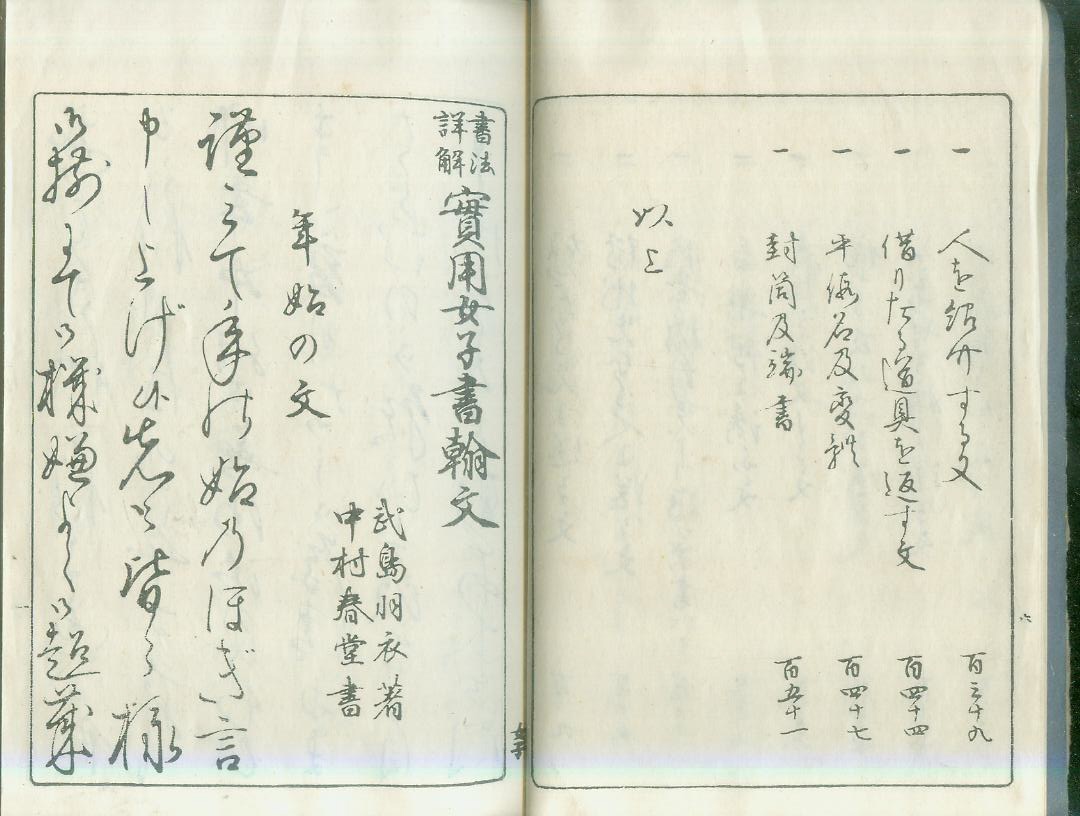 一 人を紹介する文 百三十九
一 借りたる道具を返す文 百四十四
一 平仮名及変体 百四十七
一 封筒及端書 百五十一
以上
六
書法
詳解
實用女子書翰文
武島羽衣著
中村春堂書
年始の文
謹みて年の始のほぎ言
申し上げ候先以皆々様
御揃ひにて御機嫌よく御超歳